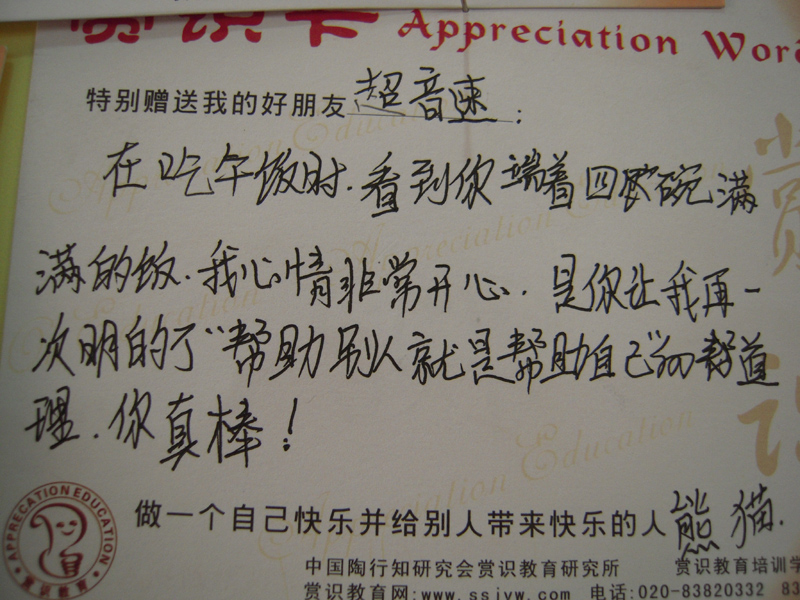 赏识卡 Appreciation Word
特别赠送我的好朋友超音速:
在吃午饭时.看到你端着四碗满
满的饭.我心情非常开心.是你让我再一
次明的了"帮助别人就是帮助自己"的道
理.你真棒!
做一个自己快乐并给别人带来快乐的人 熊猫.
中国陶行知研究会赏识教育研究所 赏识教育培训学
赏识教育网:www.ssjyw.com 电话:020-83820332 83
APPRECATION EDUCATION
赏识教育
Appreciation Education
赏识